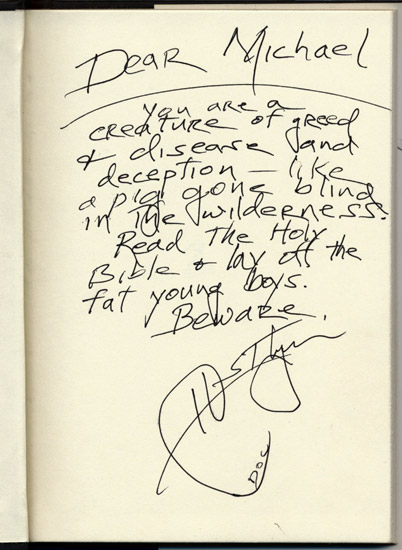 Dear Michael
you are a
creature of greed
& disease and
deception — like
a pig gone blind
in the wilderness.
Read the Holy
Bible & lay off the
fat young boys.
Beware.
Doc